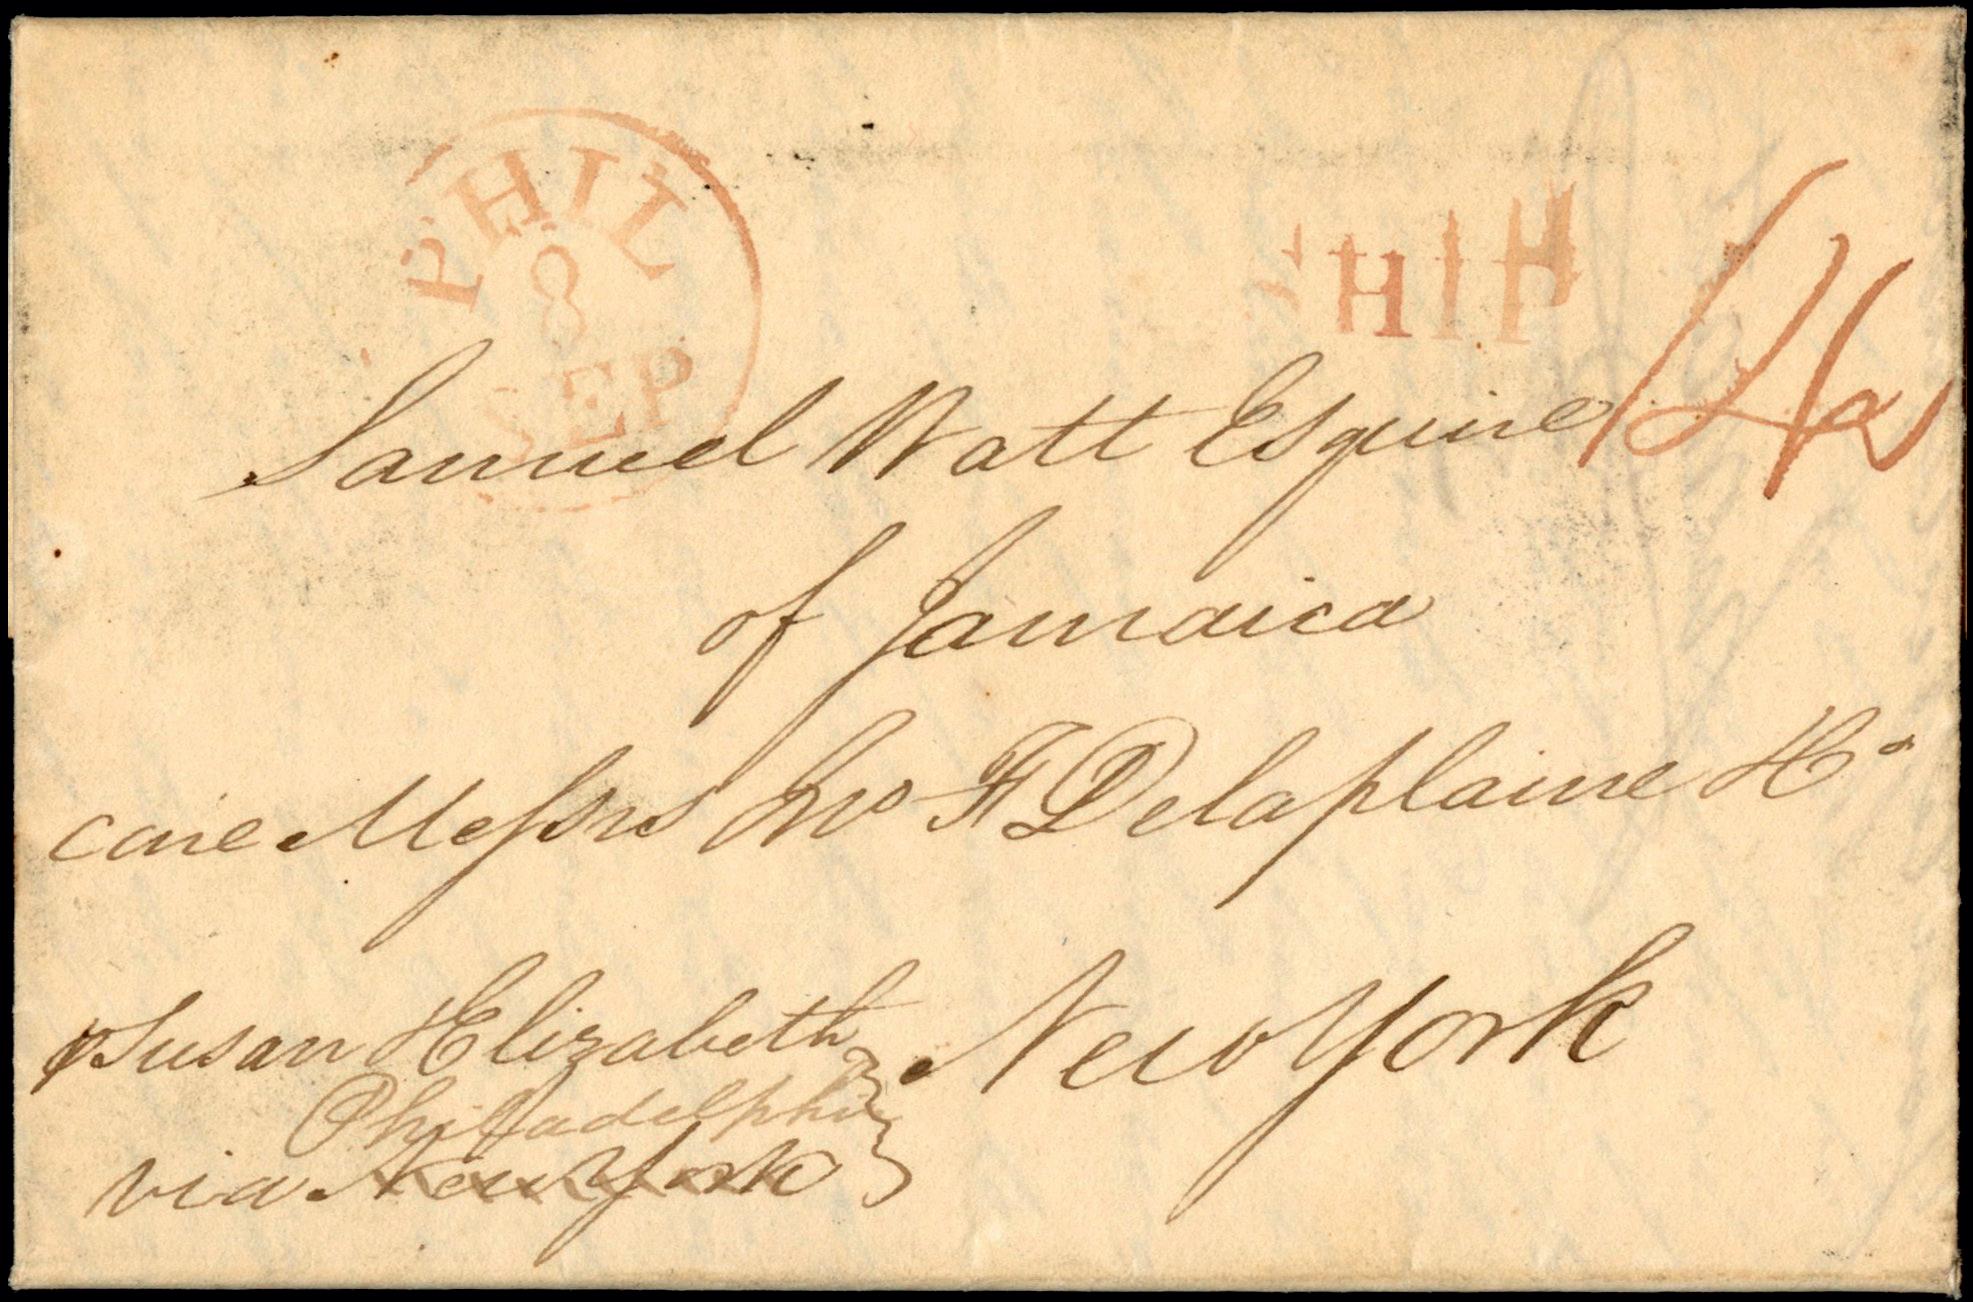 PHIL
8
SEP
SHIP
Samuel Watt Esquire
of Jamaica
care Messrs Jno F Delaplaine & Co
Susan Elizabeth
New York
Philadelphia
via New York